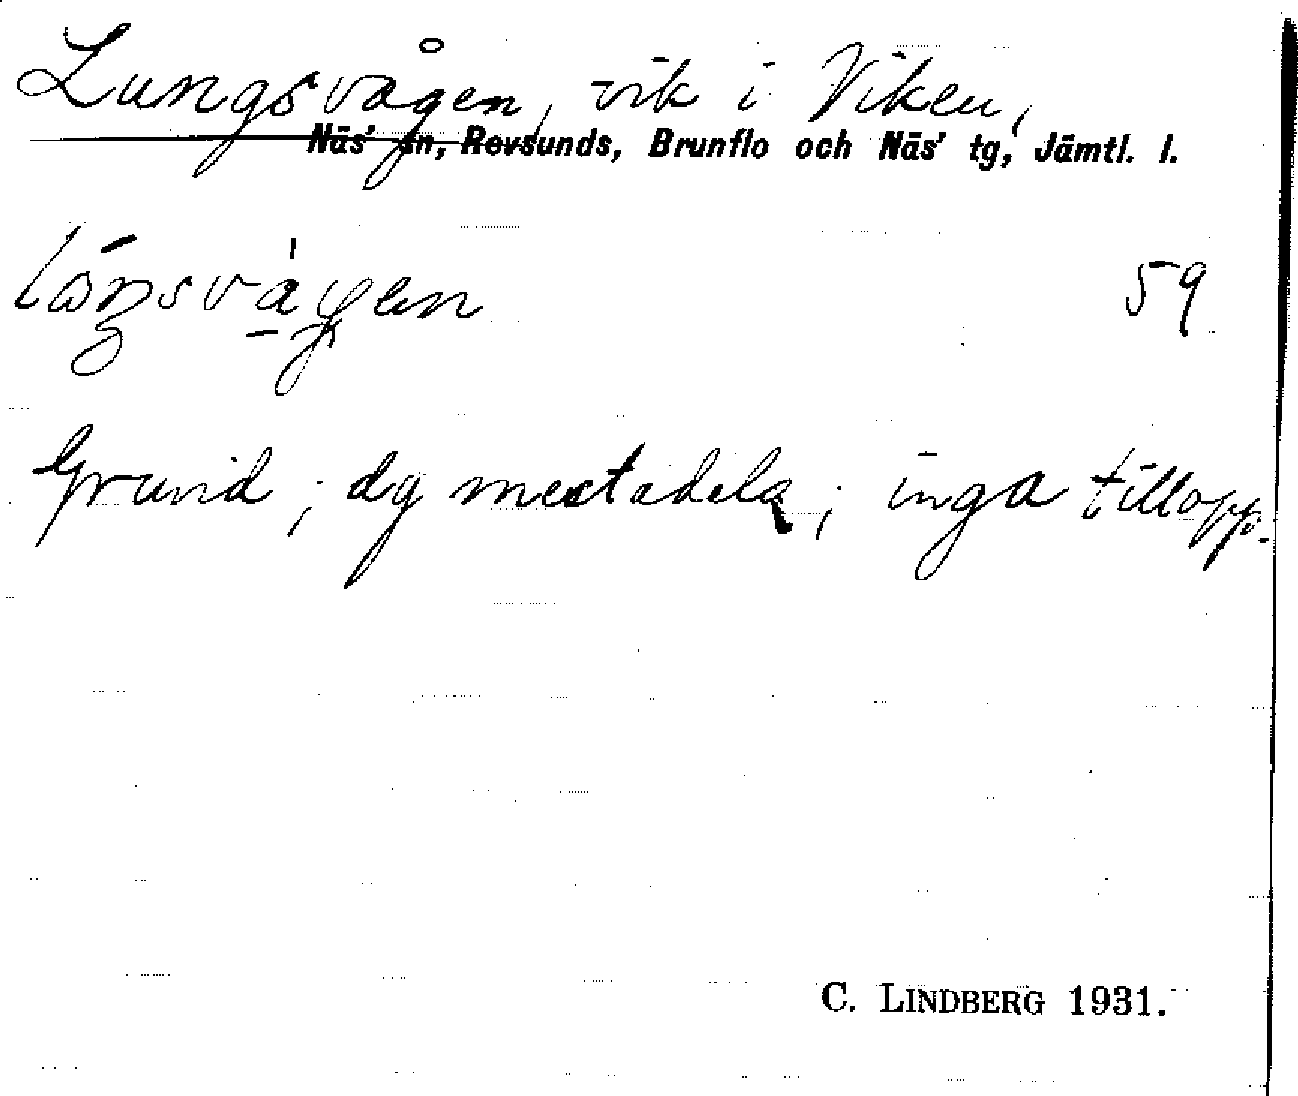 Lungsvågen, vik i Viken,
Näs' sn, Revsunds, Brunflo och Näs' tg, Jämtl. l.
59
Grund; dy mestadels; inga tillopp.
C. LINDBERG 1931.